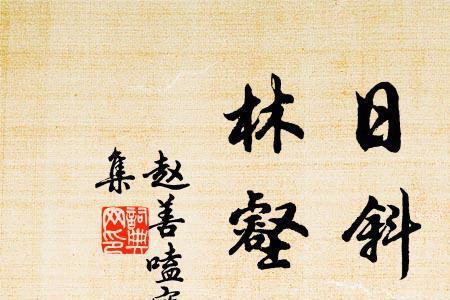 日斜
林壑
赵善嗑
集
詞典网印